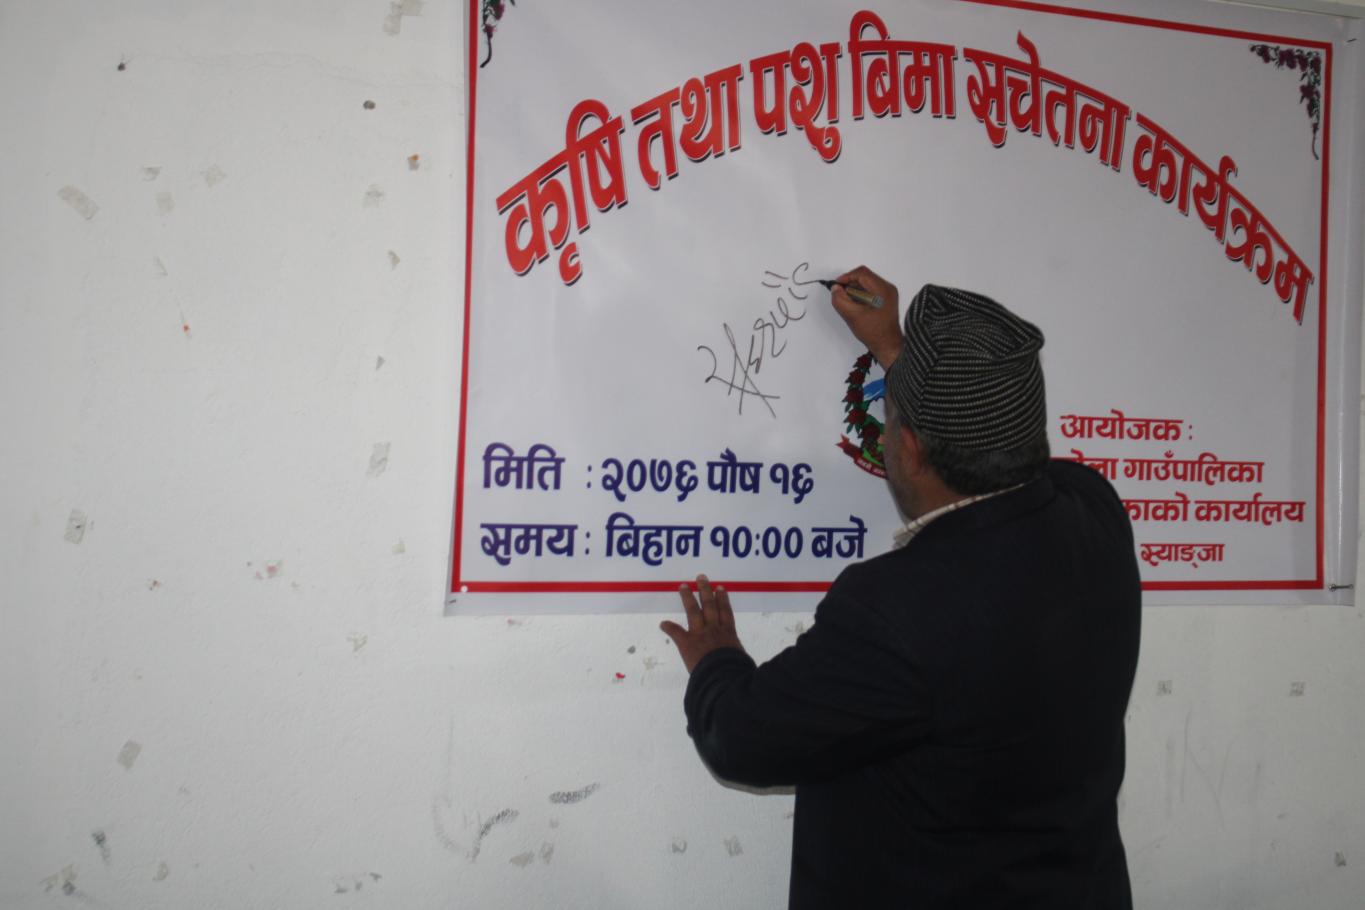 कृषि तथा पशु बिमा सचेतना कार्यक्रम
मिति : २०७६ पौष १६
समय : बिहान १०:०० बजे
आयोजक :
गाउँपालिका
कार्यालय
स्याङ्जा